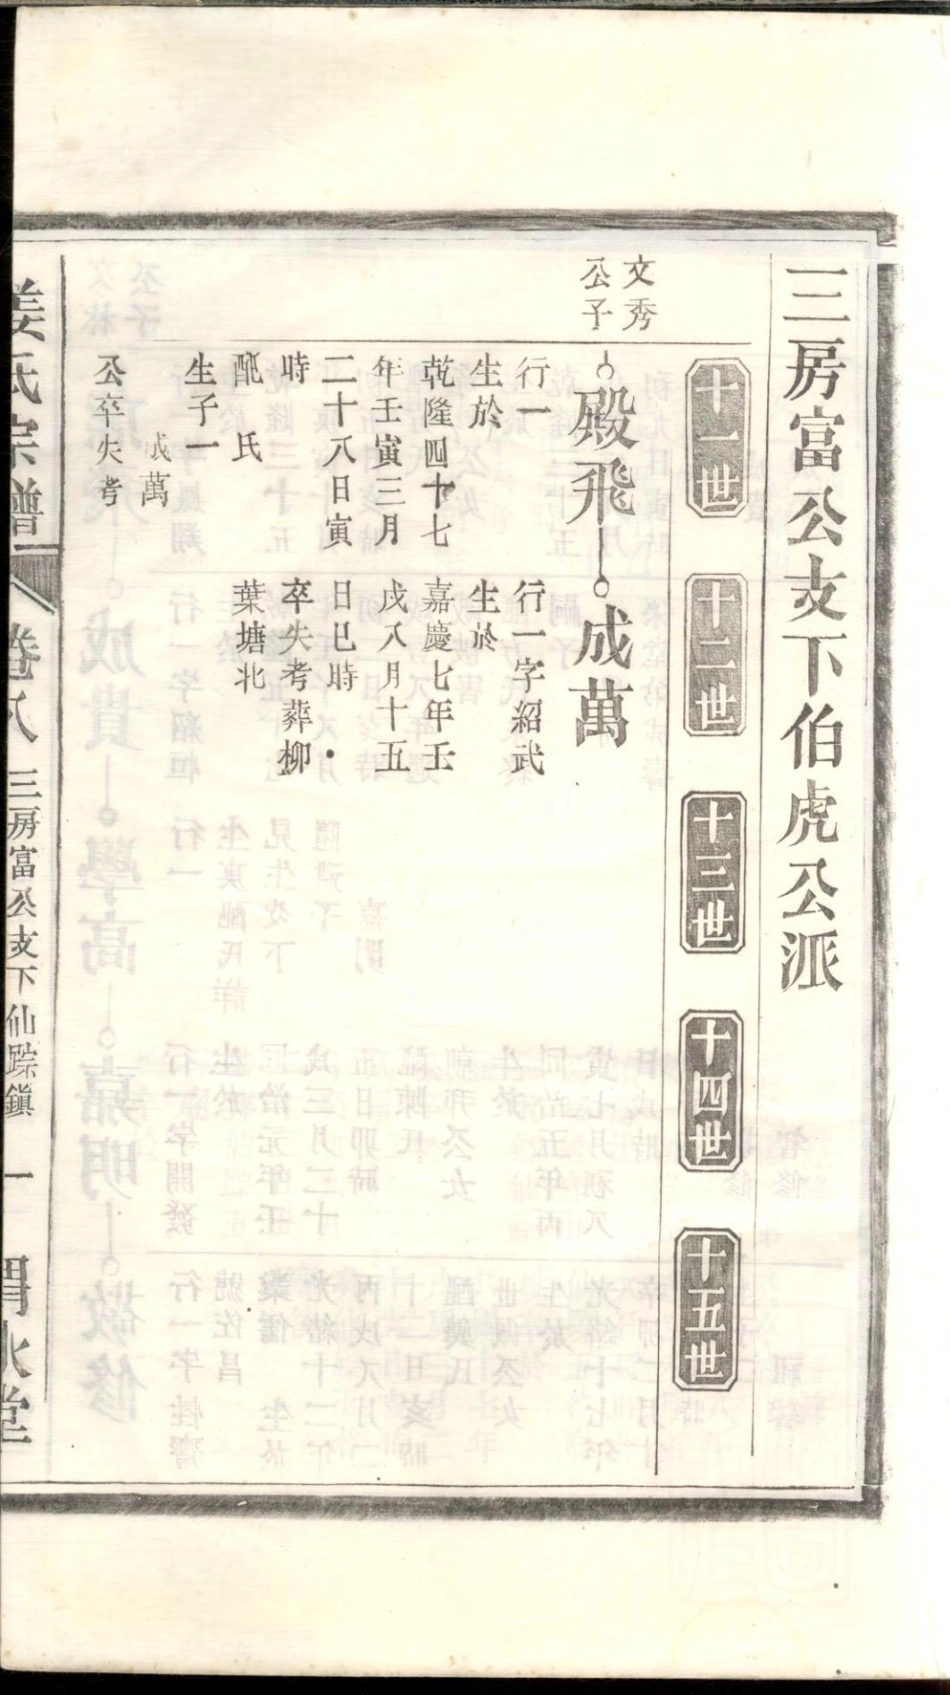 三房富公支下伯虎公派
十一世
十二世
十三世
十四世
十五世
文秀
公子
殿飛
行一
生於
乾隆四十七
年壬寅三月
二十八日寅
時
配 氏
生子一
成萬
公卒失考
成萬
行一字紹武
生於
嘉慶七年壬
戌八月十五
日巳時
卒失考葬柳
葉塘北
姜氏宗譜
卷八
三房富公支下仙踪鎮
一
渭水堂